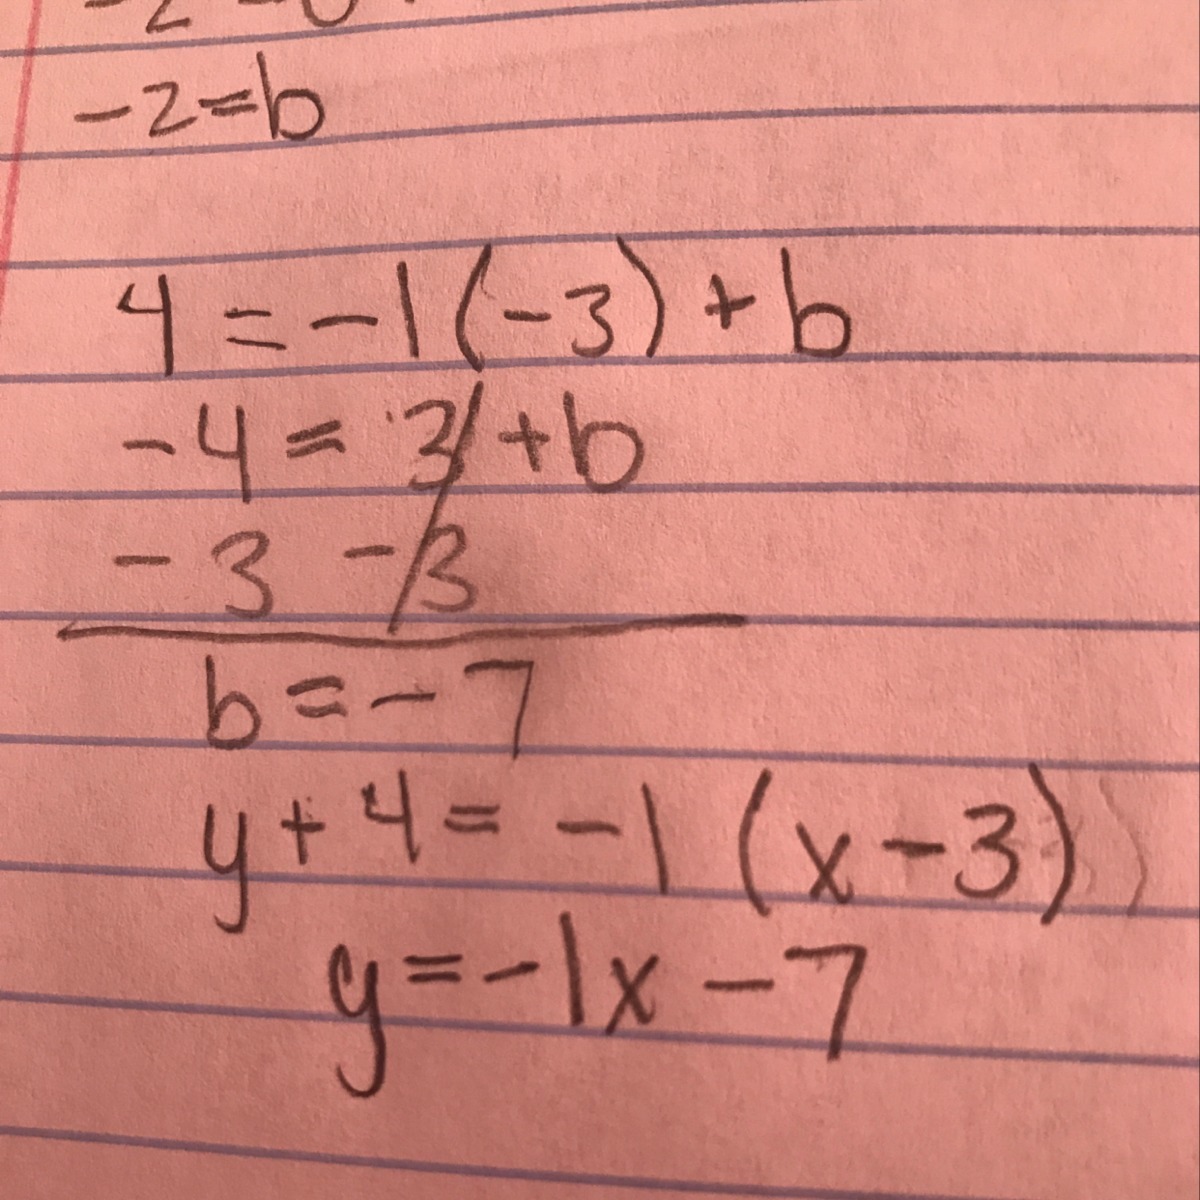 -2=b
4 = -1(-3) + b
-4 = 3 + b
-3 -3
b = -7
y + 4 = -1 (x - 3)
y = -1x - 7